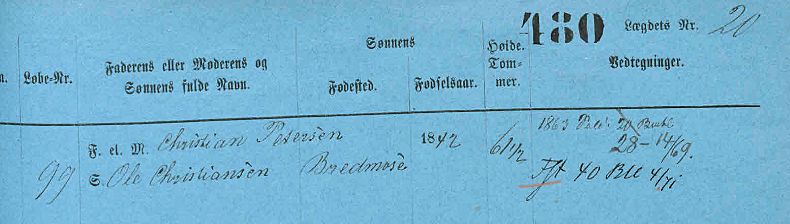 480 Lægdets Nr. 20
n. Løbe-Nr. Faderens eller Moderens og Sønnens fulde Navn. Sønnens Fødested. Fødselsaar. Høide. Tommer. Vedtegninger.
F. el. M. Christian Petersen 1842 61 1/2 1863 20
28 - 14/69.
99 S. Ole Christiansen Bredmose 40 4/71